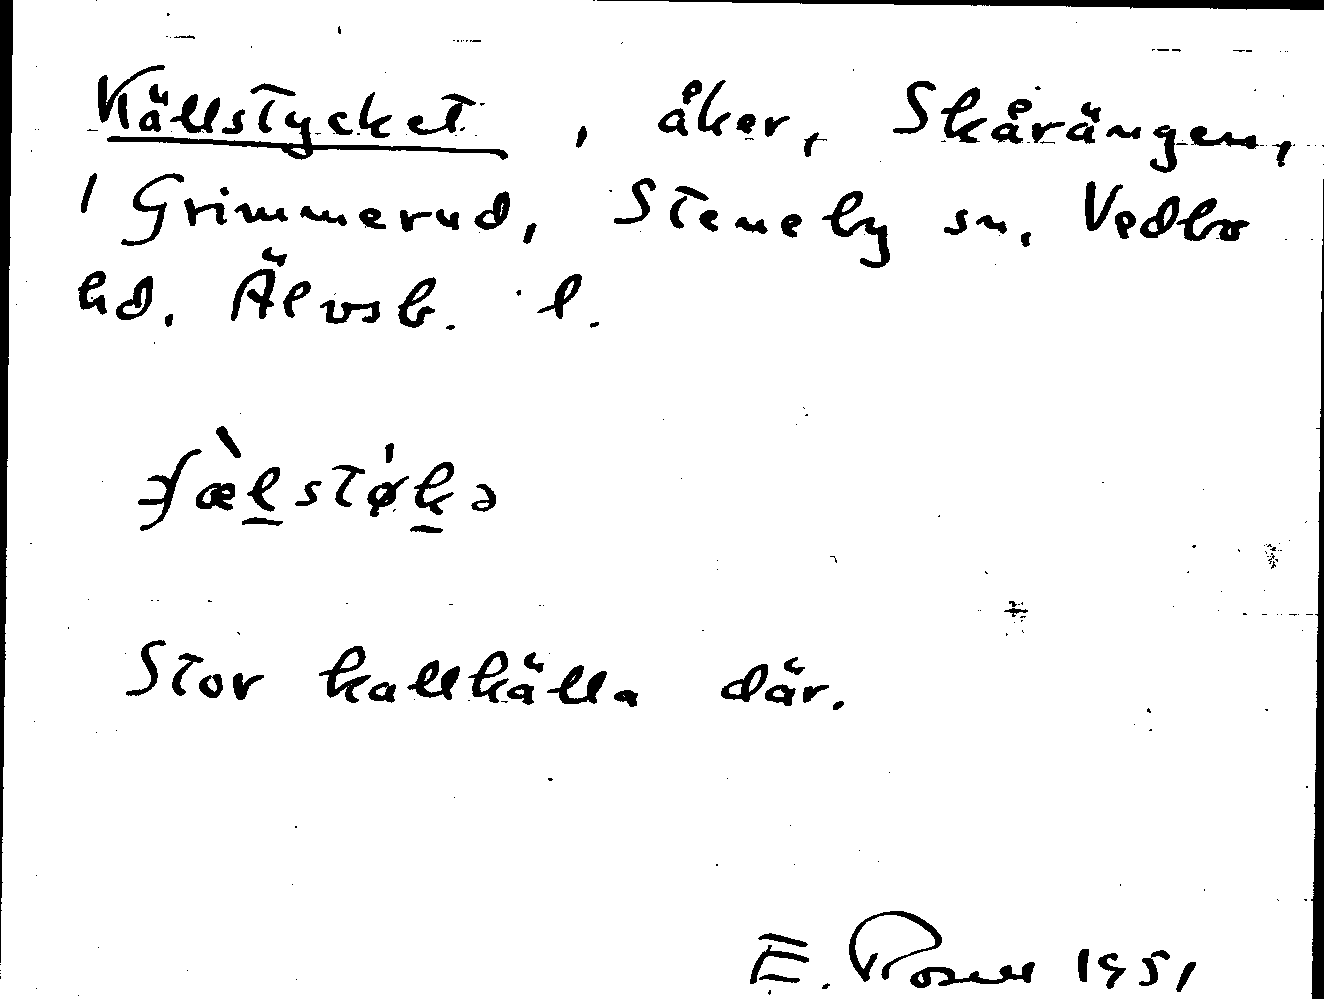 Källstycket, åker, Skårängen,
1 Grimmerud, Steneby sn, Vedbo
hd. Älvsb. l.
Stor kallkälla där.
E. 1951